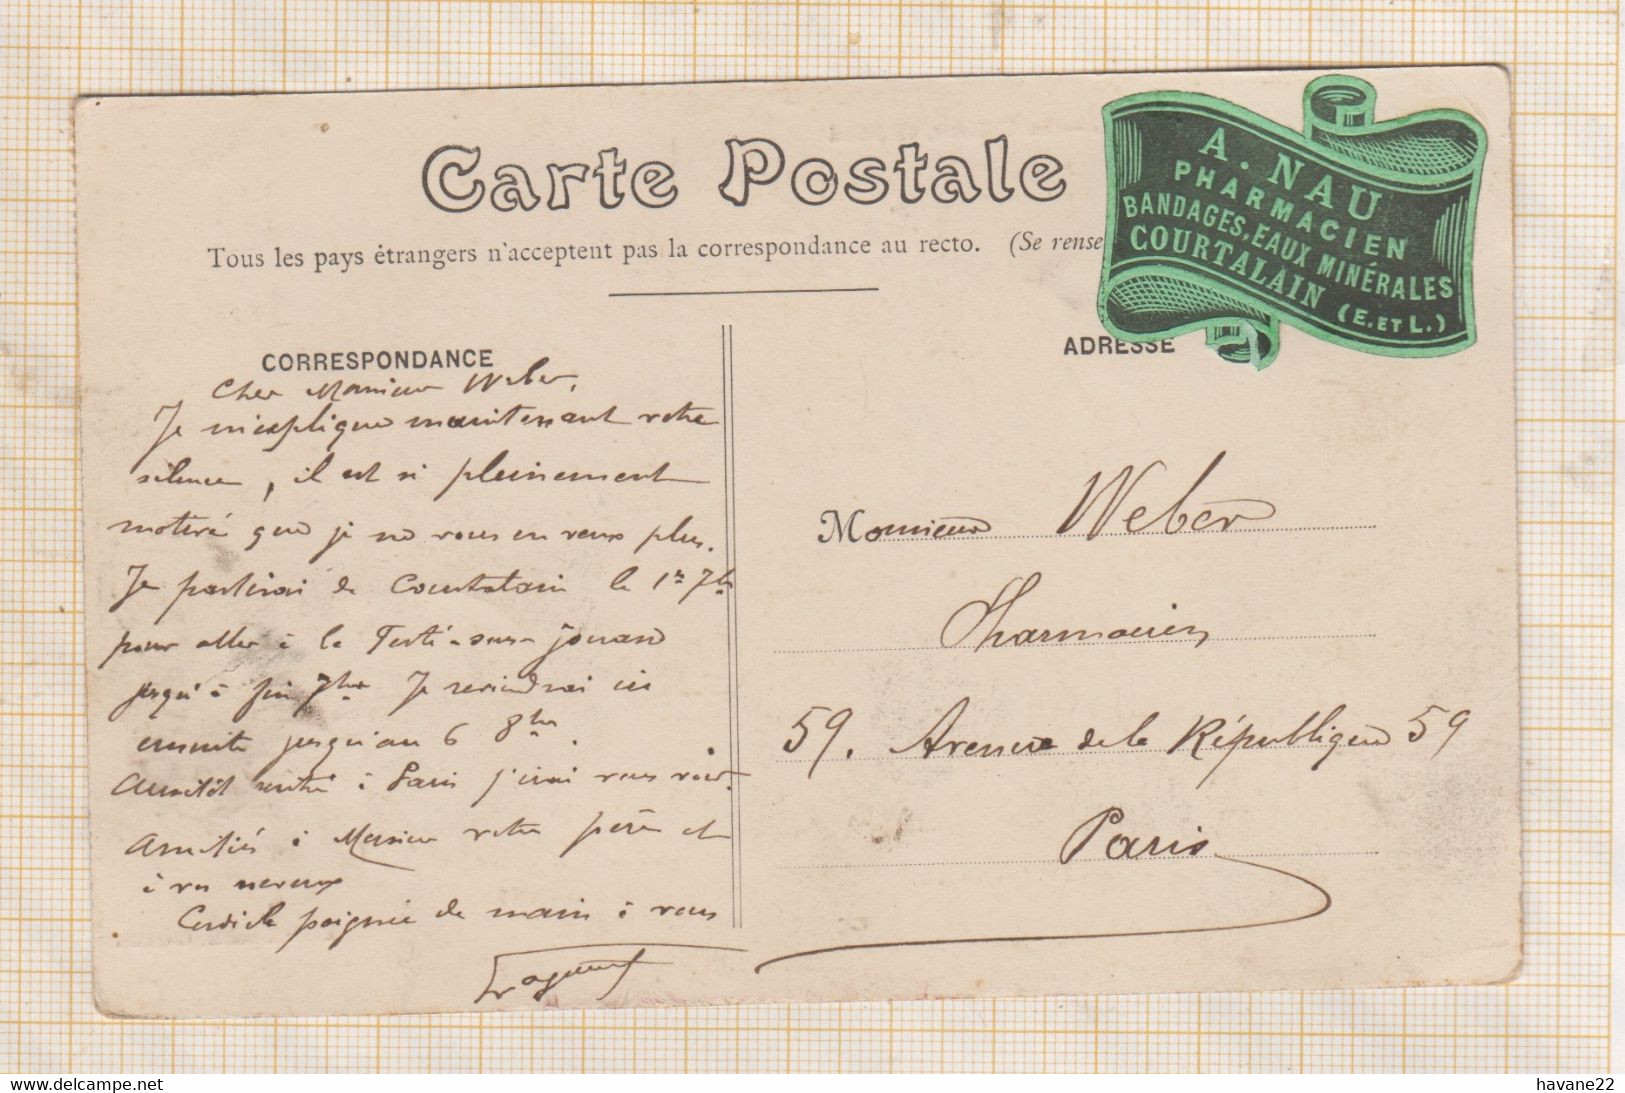 Carte Postale
Tous les pays étrangers n'acceptent pas la correspondance au recto. (Se rense
A. NAU
PHARMACIEN
BANDAGES, EAUX MINÉRALES
COURTALAIN
(E. ET L.)
CORRESPONDANCE
Cher Monsieur Weber,
Je m'explique maintenant votre
silence, il est si pleinement
motivé que je ne vous en veux plus.
Je partirai de Courtalain le 1er 7bre
pour aller à la Ferté-sous-jouarre
jusqu'à fin 7bre Je reviendrai ici
ensuite jusqu'au 6 8bre.
Aussitôt rentré à Paris j'irai vous voir.
Amitiés à Monsieur votre père et
à vos neveux
Cordiale poignée de main à vous
ADRESSE
Monsieur Weber
Pharmacien
59. Avenue de la République 59
Paris
delcampe.net
havane22